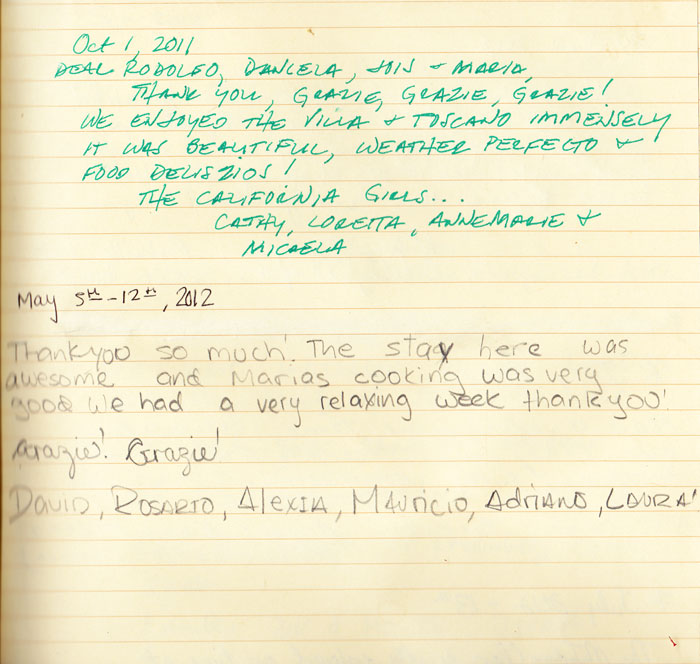 Oct 1, 2011
DEAR RODOLFO, DANIELA, JOIS & MARIA,
THANK YOU, GRAZIE, GRAZIE, GRAZIE!
WE ENJOYED THE VILLA & TOSCANO IMMENSELY
IT WAS BEAUTIFUL, WEATHER PERFECTO &
FOOD DELISZIOS!
THE CALIFORNIA GIRLS...
CATHY, LORETTA, ANNEMARIE &
MICAELA
May 5th-12th, 2012
Thankyou so much! The stay here was
awesome and Marias cooking was very
good we had a very relaxing week thankyou!
Grazie! Grazie!
DAVID, ROSARIO, Alexia, Mauricio, Adriano, LAURA!